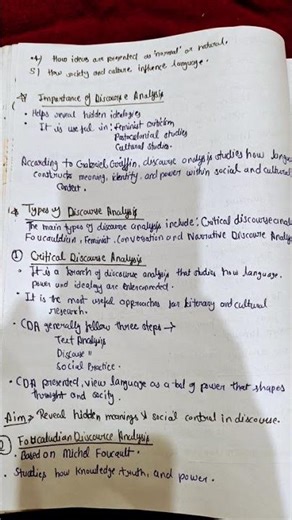 4) How ideas are presented as 'normal' or natural.
5) How society and culture influence language.
Importance of Discourse Analysis
• Helps reveal hidden ideologies
• It is useful in: feminist criticism
Postcolonial studies
Cultural studies.
According to Gabriel Griffin, discourse analysis studies how langu
constructs meaning, identity, and power within social and cultural
Context.
Types of Discourse Analysis
The main types of discourse analysis include: Critical discourse anal
Foucauldian, Feminist, Conversation and Narrative Discourse Analys
① Critical Discourse Analysis
• It is a branch of discourse analysis that studies how language,
power and ideology are interconnected.
• It is the most useful approaches for literary and cultural
research.
• CDA generally follow three steps →
Text Analysis
Discourse "
Social Practice.
• CDA presented, view language as a tool of power that shapes
thought and society.
Aim → Reveal hidden meanings & social control in discourse.
② Foucauldian Discourse Analysis
• Based on Michel Foucault.
• Studies how knowledge truth, and power.